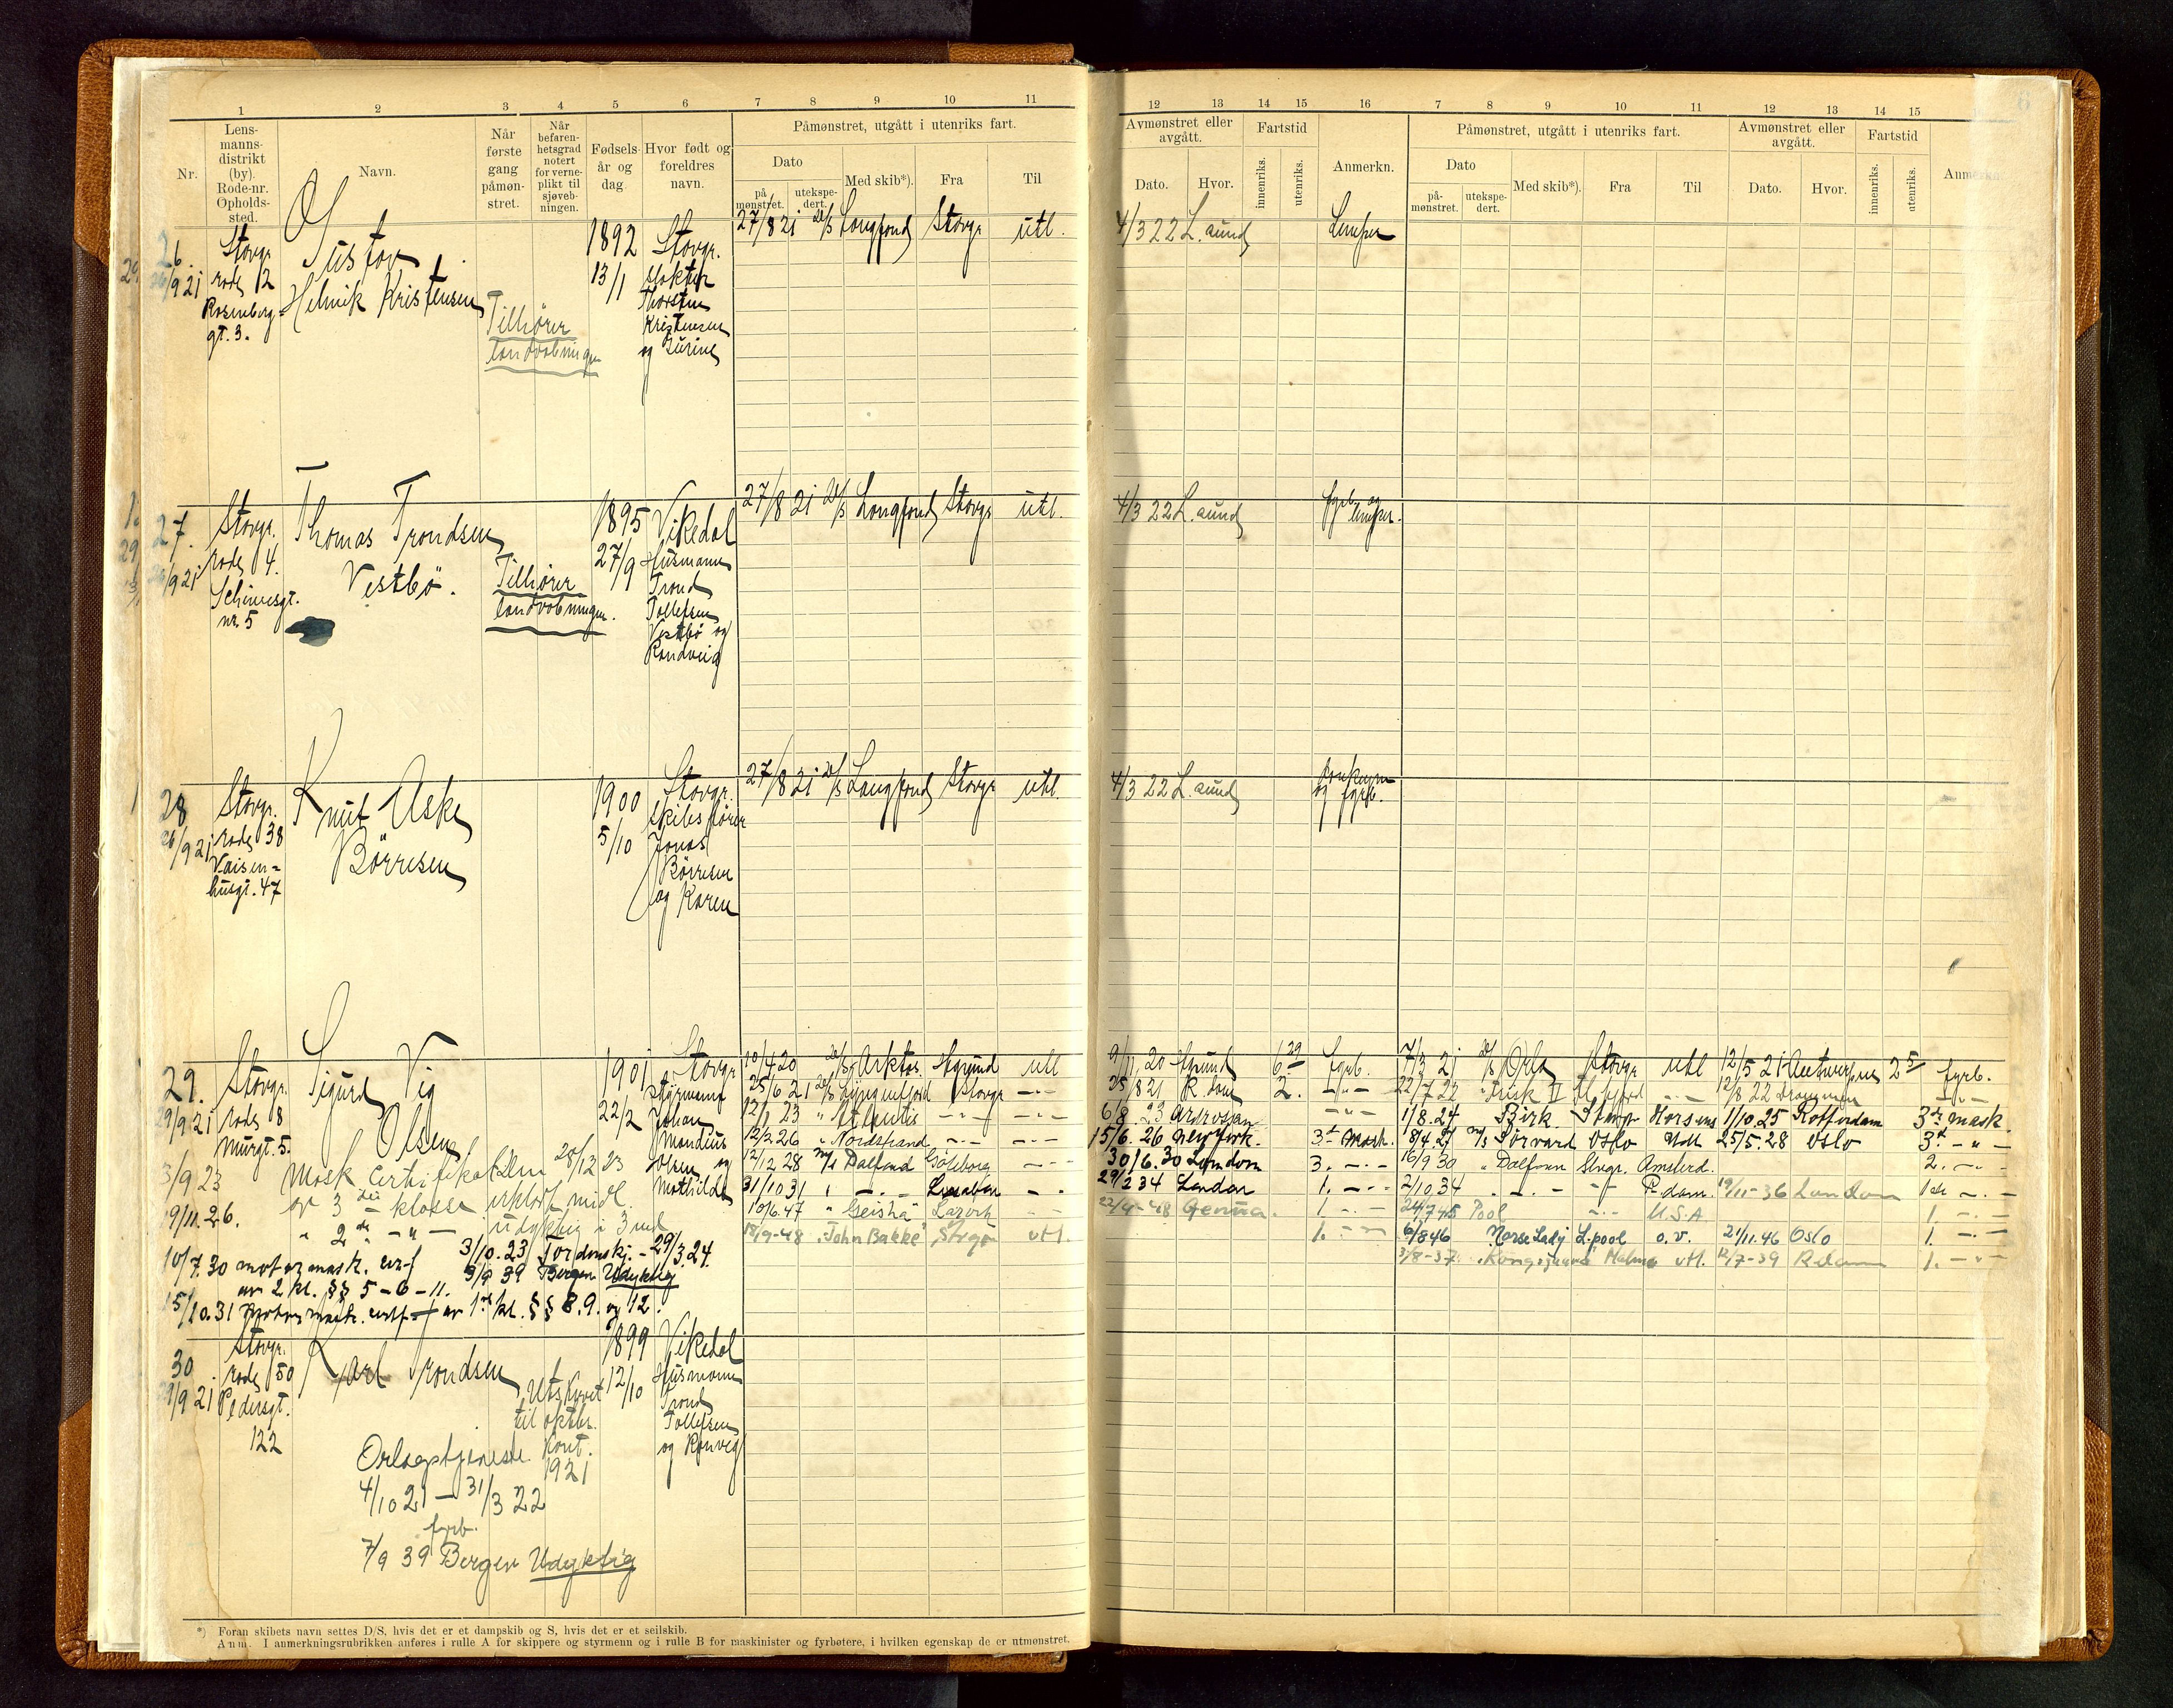 1 2 3 4 5 6 7 8 9 10 11
Nr.
Lens-
manns-
distrikt
(by).
Rode-nr.
Opholds-
sted.
Navn.
Når
første
gang
påmøn-
stret.
Når
befaren-
hetsgrad
notert
for verne-
plikt til
sjøveb-
ningen.
Fødsels-
år og
dag.
Hvor født og
foreldres
navn.
Påmønstret, utgått i utenriks fart.
Dato
på
mønstret.
utekspe-
dert.
Med skib*).
Fra
Til
12 13 14 15 16 7 8 9 10 11 12 13 14 15
Avmønstret eller
avgått.
Dato.
Hvor.
Fartstid
innenriks.
utenriks.
Anmerkn.
Påmønstret, utgått i utenriks fart.
Dato
på-
mønstret.
utekspe-
dert.
Med skib*).
Fra
Til
Avmønstret eller
avgått.
Dato.
Hvor.
Fartstid
innenriks.
utenriks.
Anmerkn.
26.
26/9 21
Stavgr.
rode 12
Rosenberg-
gt. 3.
Gustav
Helmik Kristensen
Tilhører
landvebningen
1892
13/1
Stavgr.
Thorsten
Kristensen
og Gurine
27/8 21 D/S Langfond Stavgr utl.
4/3 22 L. sund Lemper
27.
26/9 21
Stavgr.
rode 4.
nr. 5
Thomas Trondsen
Vestbö.
Tilhører
landvebningen.
1895
27/9
Vikedal
Husmann
Trond
Tollefsen
Vestbö og
Randveig
27/8 21 D/S Langfond Stavgr utl.
4/3 22 L. sund fyrb. og
lemper.
28
26/9 21
Stavgr.
rode 38
Vaisen-
husgt. 47
Knut Aske
Börresen
1900
5/10
Stavgr.
Skibsfører
Jonas
Börresen
og Karen
27/8 21 D/S Langfond Stavgr utl.
4/3 22 L. sund
og fyrb.
29.
29/9 21
Stavgr.
rode 8
Murgt. 5.
Sigurd Vig
Olsen
1901
22/2
Stavgr
Styrmann
Johan
Mandius
Olsen og
Mathilde
10/4 20 D/S Arktos utl
25/6 21 D/S Lyngenfjord Stavgr -"-
12/1 23 " Atlantis -"- -"-
12/2 26 " Nordstrand -"- -"-
12/12 28 M/S Dalfond Göteborg -"-
31/10 31 " -"- -"-
10/6.47 " Geisha
18/9-48 " John Bakke Stvgr utl.
fyrb.
25/8 21 R.dam 2. -"-
6/8 23 Ardrossan -"-
15/6. 26 New York. 3dt Mask.
30/6.30 London 3. -"-
29/2 34 London 1. -"-
22/4-48 Genua. 1 -"-
1. -"-
7/3 21 D/S Stavgr utl 12/5 21 Antwerpen 2 5/ fyrb.
22/7 22 12/8 22 Drammen -"-
1/8.24 Birk Stavgr Horsens 1/10.25 Rotterdam 3de mask.
8/4 27 M/S Sörvard Oslo Utl 25/5.28 Oslo 3. -"-
16/9 30 " Dalfonn Stvgr. Amsterd. 2. -"-
2/10 34 -"- R-dam. 19/11-36 London 1ste -"-
24/7 45 Pool -"- U.S.A 1. -"-
6/8 46 Norse Lady L.pool o.v. 21/11.46 Oslo 1. -"-
3/8-37. " Kongsgaard Malmø utl. 12/7-39 R.dam 1. -"-
3/9 23 Mask certifikat 28/12 23
av 3die klasse
9/11.26. " 2de -"-
Udyktig i 3 md
3/10.23 Tordenskj. - 29/3.24.
3/9 39 Bergen Udyktig
10/7.30 motormask. cert
av 2 kl. §§ 5-6-11.
15/10.31 Motormask. certf av 1ste kl. §§ 8.9. og 12.
30
29/9 21
Stavgr.
rode 50
Pedersgt.
122
Karl Trondsen
Utskrevet
til oktbr.
kont.
1921
1899
12/10
Vikedal
Husmann
Trond
Tollefsen
og Ronveig
Orlogstjeneste
4/10 21 — 31/3 22
fyrb.
7/9 39 Bergen Udyktig
*) Foran skibets navn settes D/S, hvis det er et dampskib og S, hvis det er et seilskib.
Anm. I anmerkningsrubrikken anføres i rulle A for skippere og styrmenn og i rulle B for maskinister og fyrbøtere, i hvilken egenskap de er utmønstret.